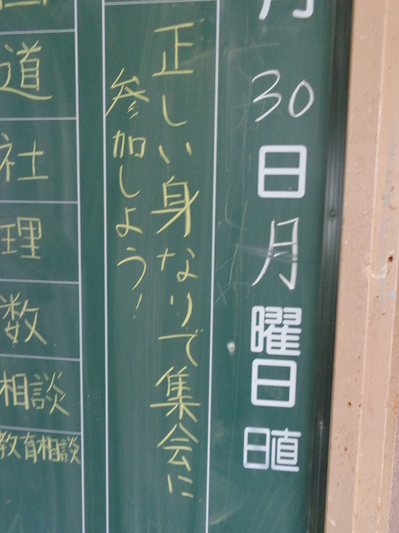 月
30
日
月
曜
日
日直
正しい身なりで集会に
参加しよう!
道
社
理
数
相談
教育相談